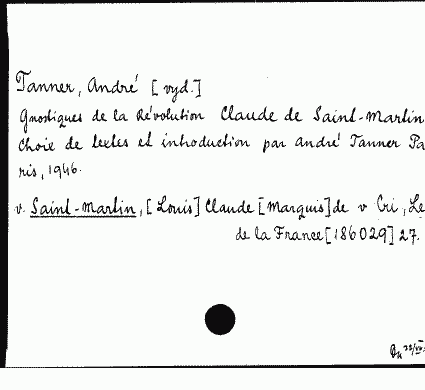 Tanner, André [vyd.]
Gnostiques de la Révolution Claude de Saint-Martin
Choix de textes et introduction par André Tanner Pa
ris, 1946.
v. Saint-Martin, [Louis] Claude [Marquis] de v Cri, Le
de la France [186029] 27.